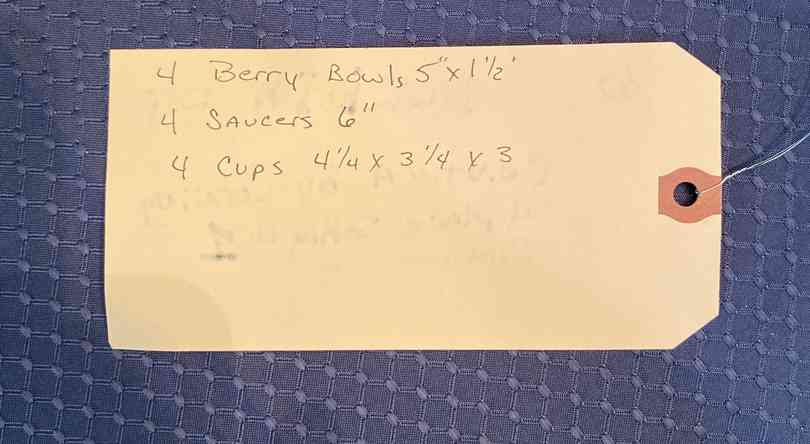 4 Berry Bowls 5" x 1 1/2'
4 Saucers 6"
4 Cups 4 1/4 x 3 1/4 x 3